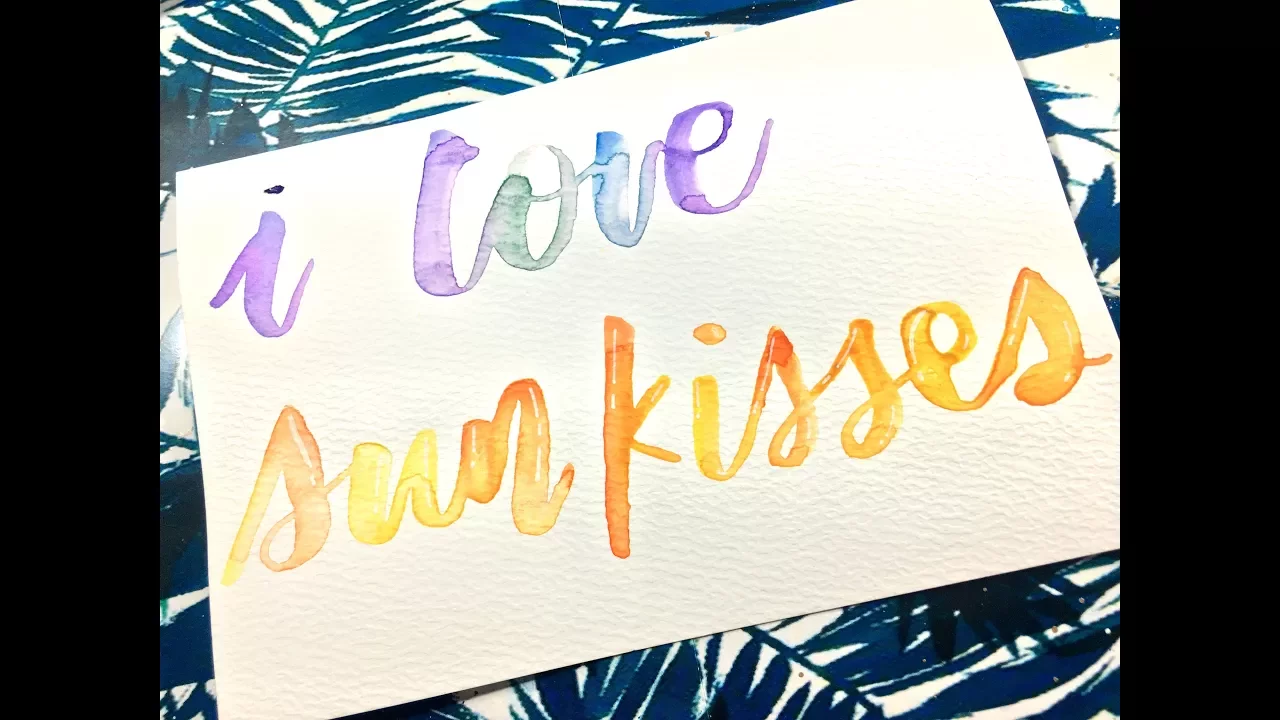 i love
sun kisses